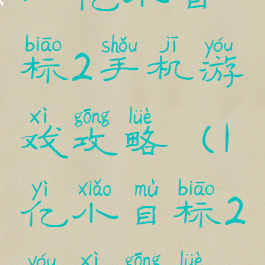 亿小目
biāo shǒu jī yóu
标2手机游
xì gōng lüè
戏攻略(1
yì xiǎo mù biāo
亿小目标2
yóu xì gōng lüè